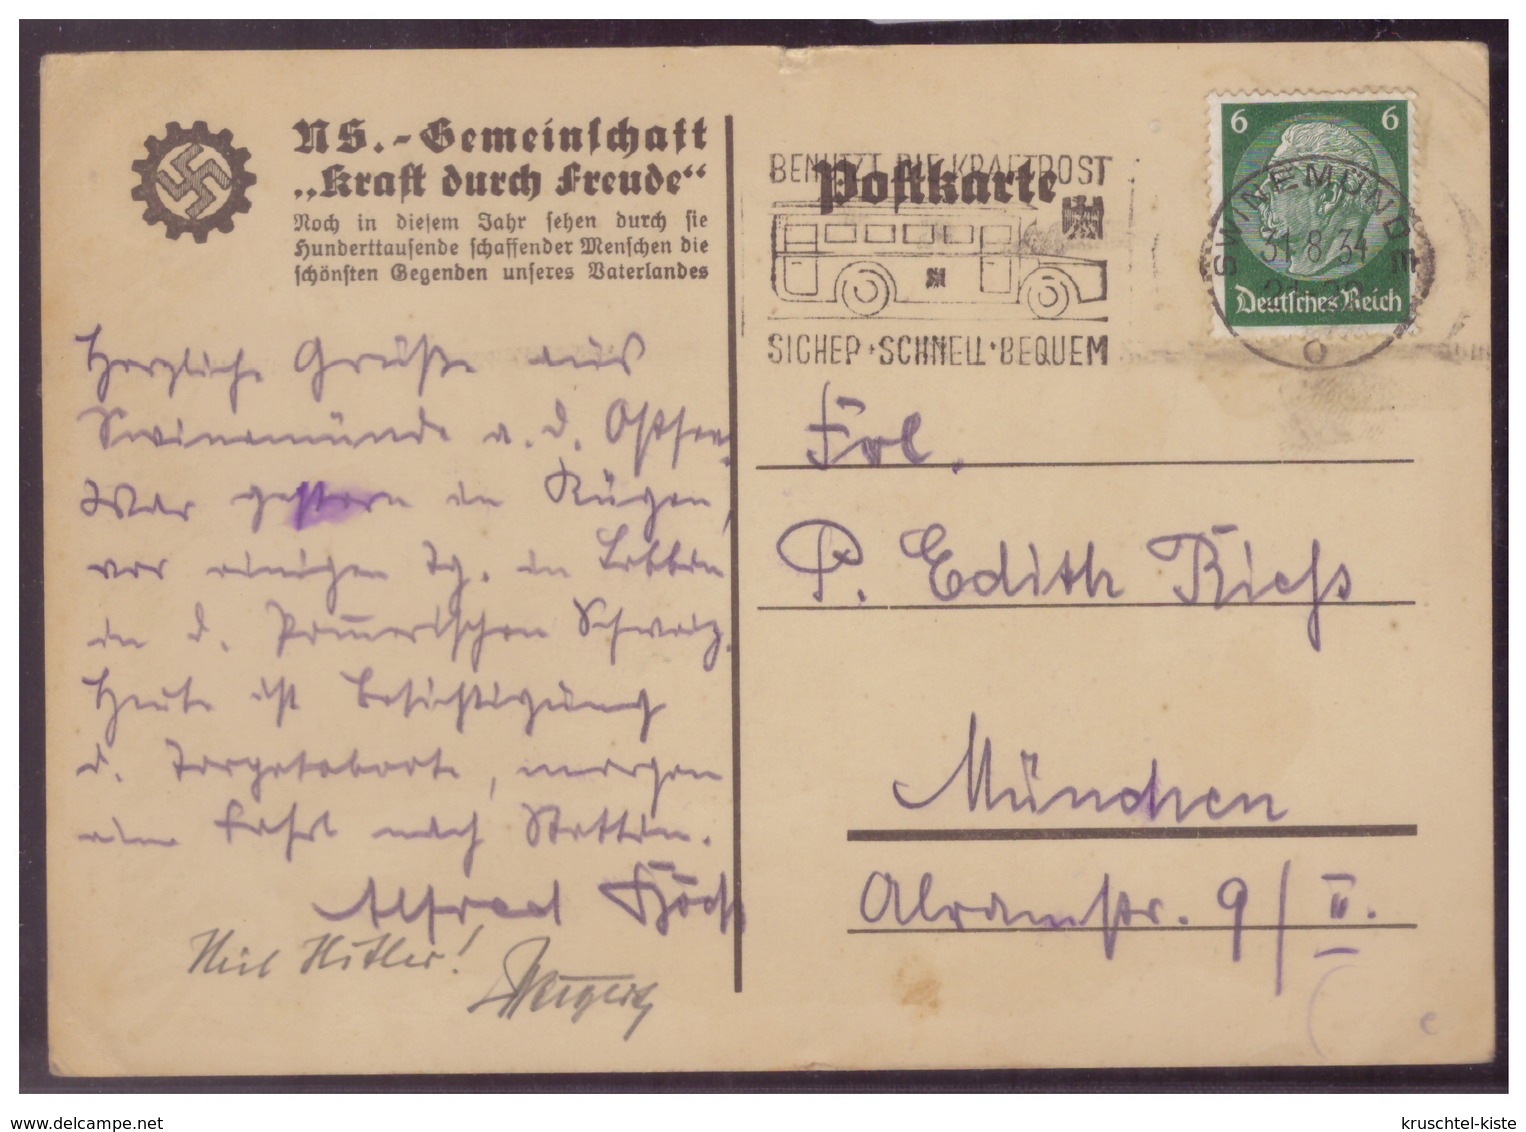 NS.-Gemeinschaft
„Kraft durch Freude“
Noch in diesem Jahr sehen durch sie
Hunderttausende schaffender Menschen die
schönsten Gegenden unseres Vaterlandes
Herzliche Grüße aus
Swinemünde a. d. Ostsee.
War gestern in Rügen,
vor einigen Tg. in Lebbin
in d. Pom̅erischen Schweiz.
Heute ist Besichtigung
d. Torpedoboote, morgen
eine Fahrt nach Stettin.
Alfred
Heil Hitler!
Postkarte
BENUTZT DIE KRAFTPOST
SICHER · SCHNELL · BEQUEM
6 6
SWINEMÜNDE
31 8 34
Deutsches Reich
Frl.
P. Edith Riehs
München
9/II.
www.delcampe.net
kruschtel-kiste